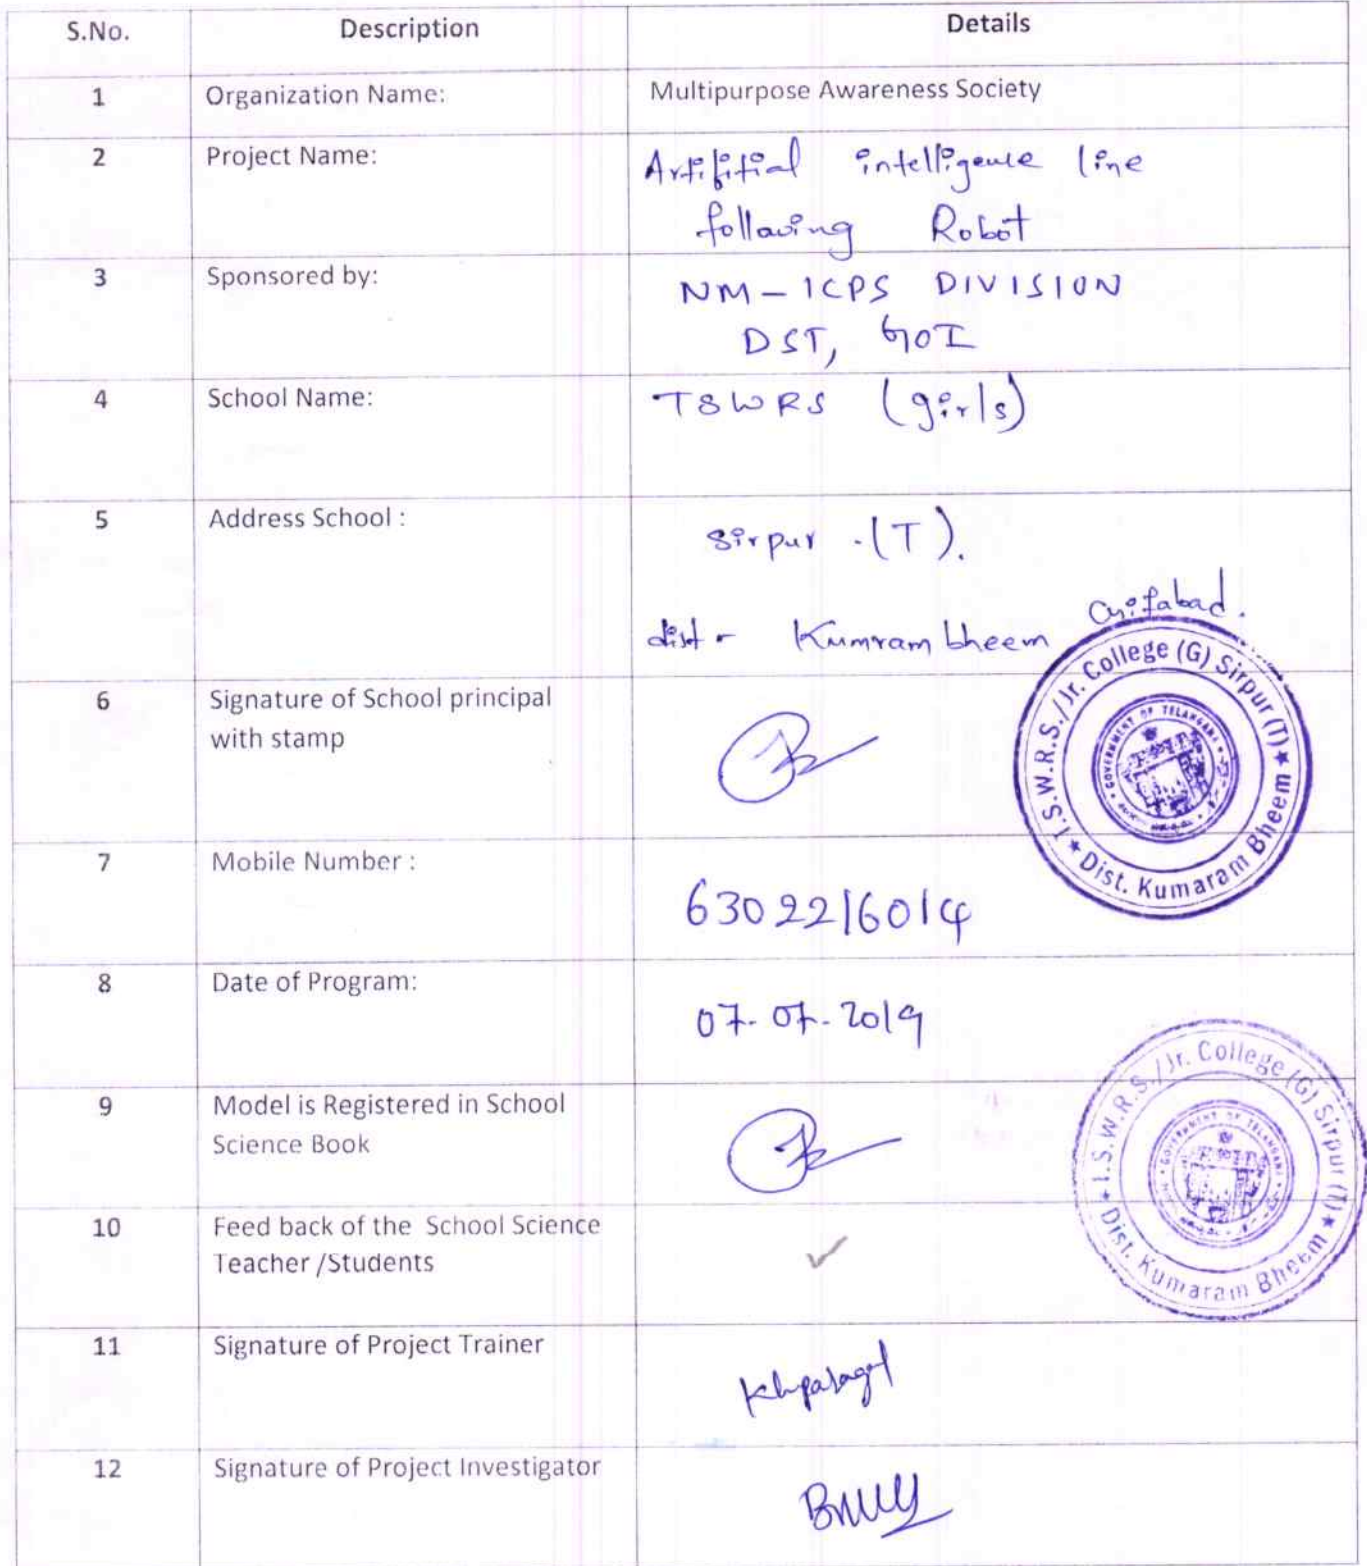 S.No. Description Details
1 Organization Name: Multipurpose Awareness Society
2 Project Name: Artifitial intelligence line
following Robot
3 Sponsored by: NM-ICPS DIVISION
DST, GOI
4 School Name: TSWRS (girls)
5 Address School : Sirpur .(T).
dist - Kumram bheem Asifabad.
6 Signature of School principal
with stamp
T.S.W.R.S./Jr. College (G) Sirpur (T) ★ Dist. Kumaram Bheem ★
GOVERNMENT OF TELANGANA
7 Mobile Number : 6302216014
8 Date of Program: 07-07-2019
9 Model is Registered in School
Science Book
T.S.W.R.S./Jr. College (G) Sirpur (T) ★ Dist. Kumaram Bheem ★
GOVERNMENT OF TELANGANA
10 Feed back of the School Science
Teacher /Students ✓
11 Signature of Project Trainer
12 Signature of Project Investigator